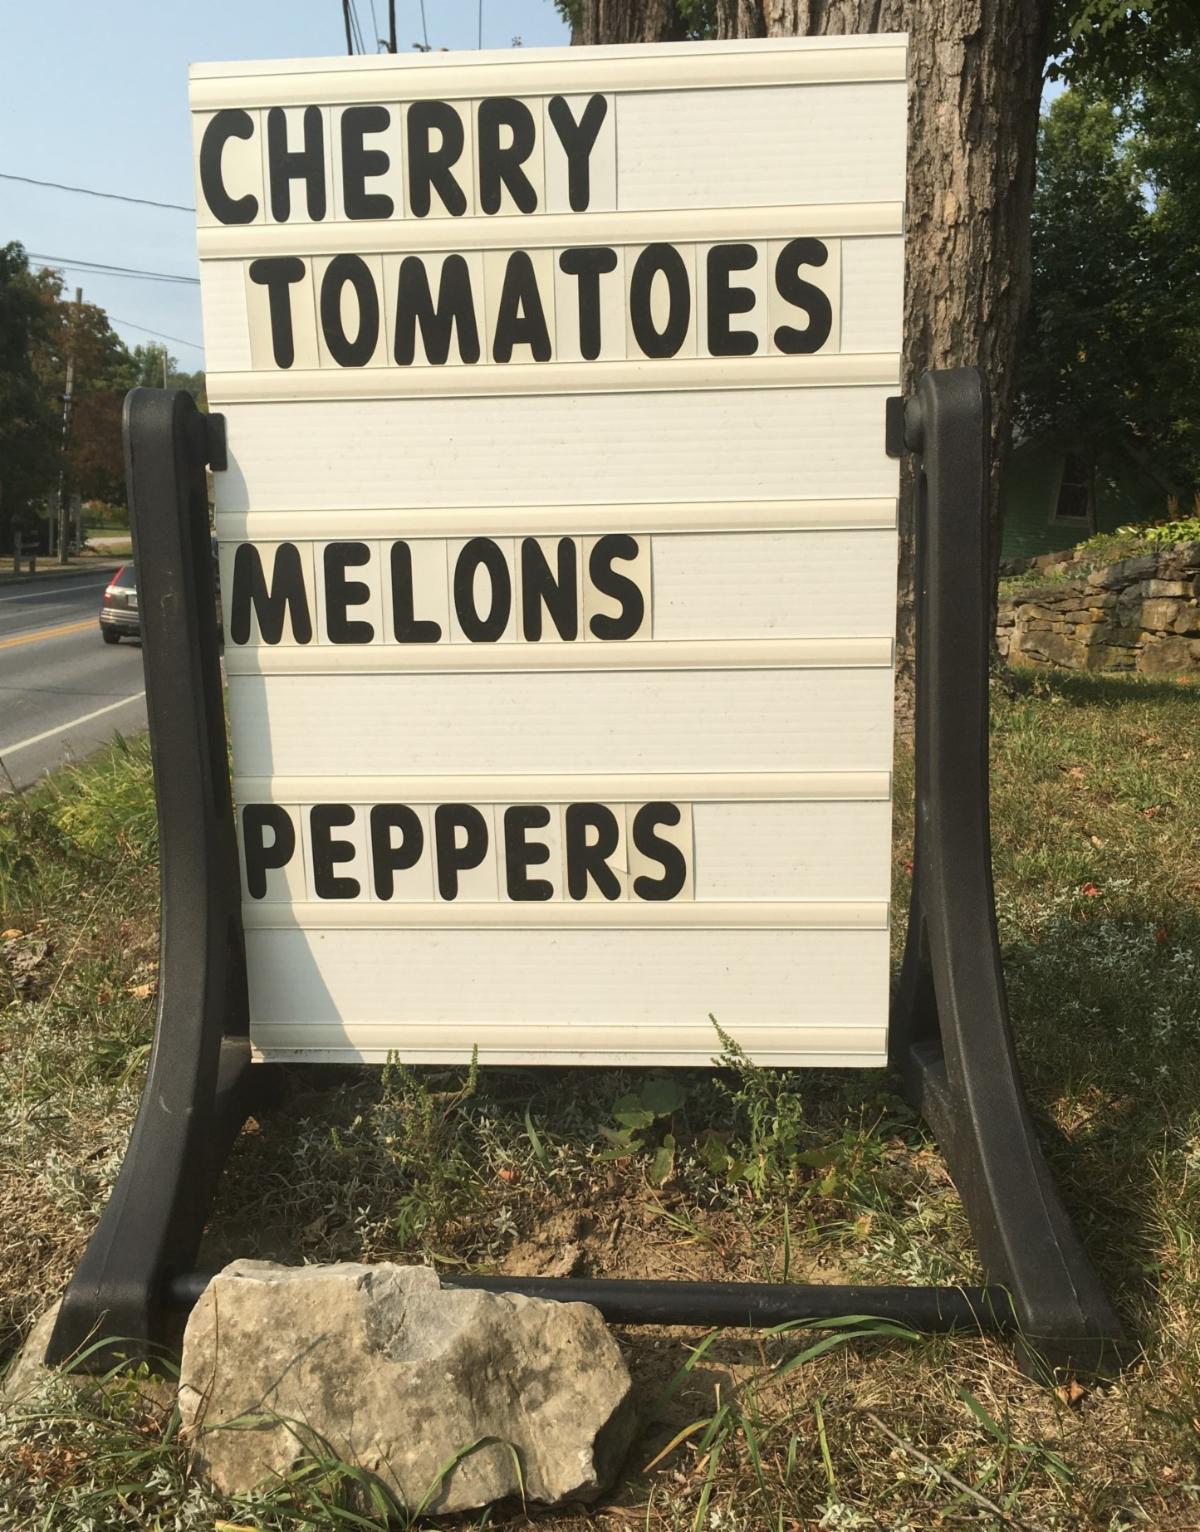 CHERRY
TOMATOES
MELONS
PEPPERS